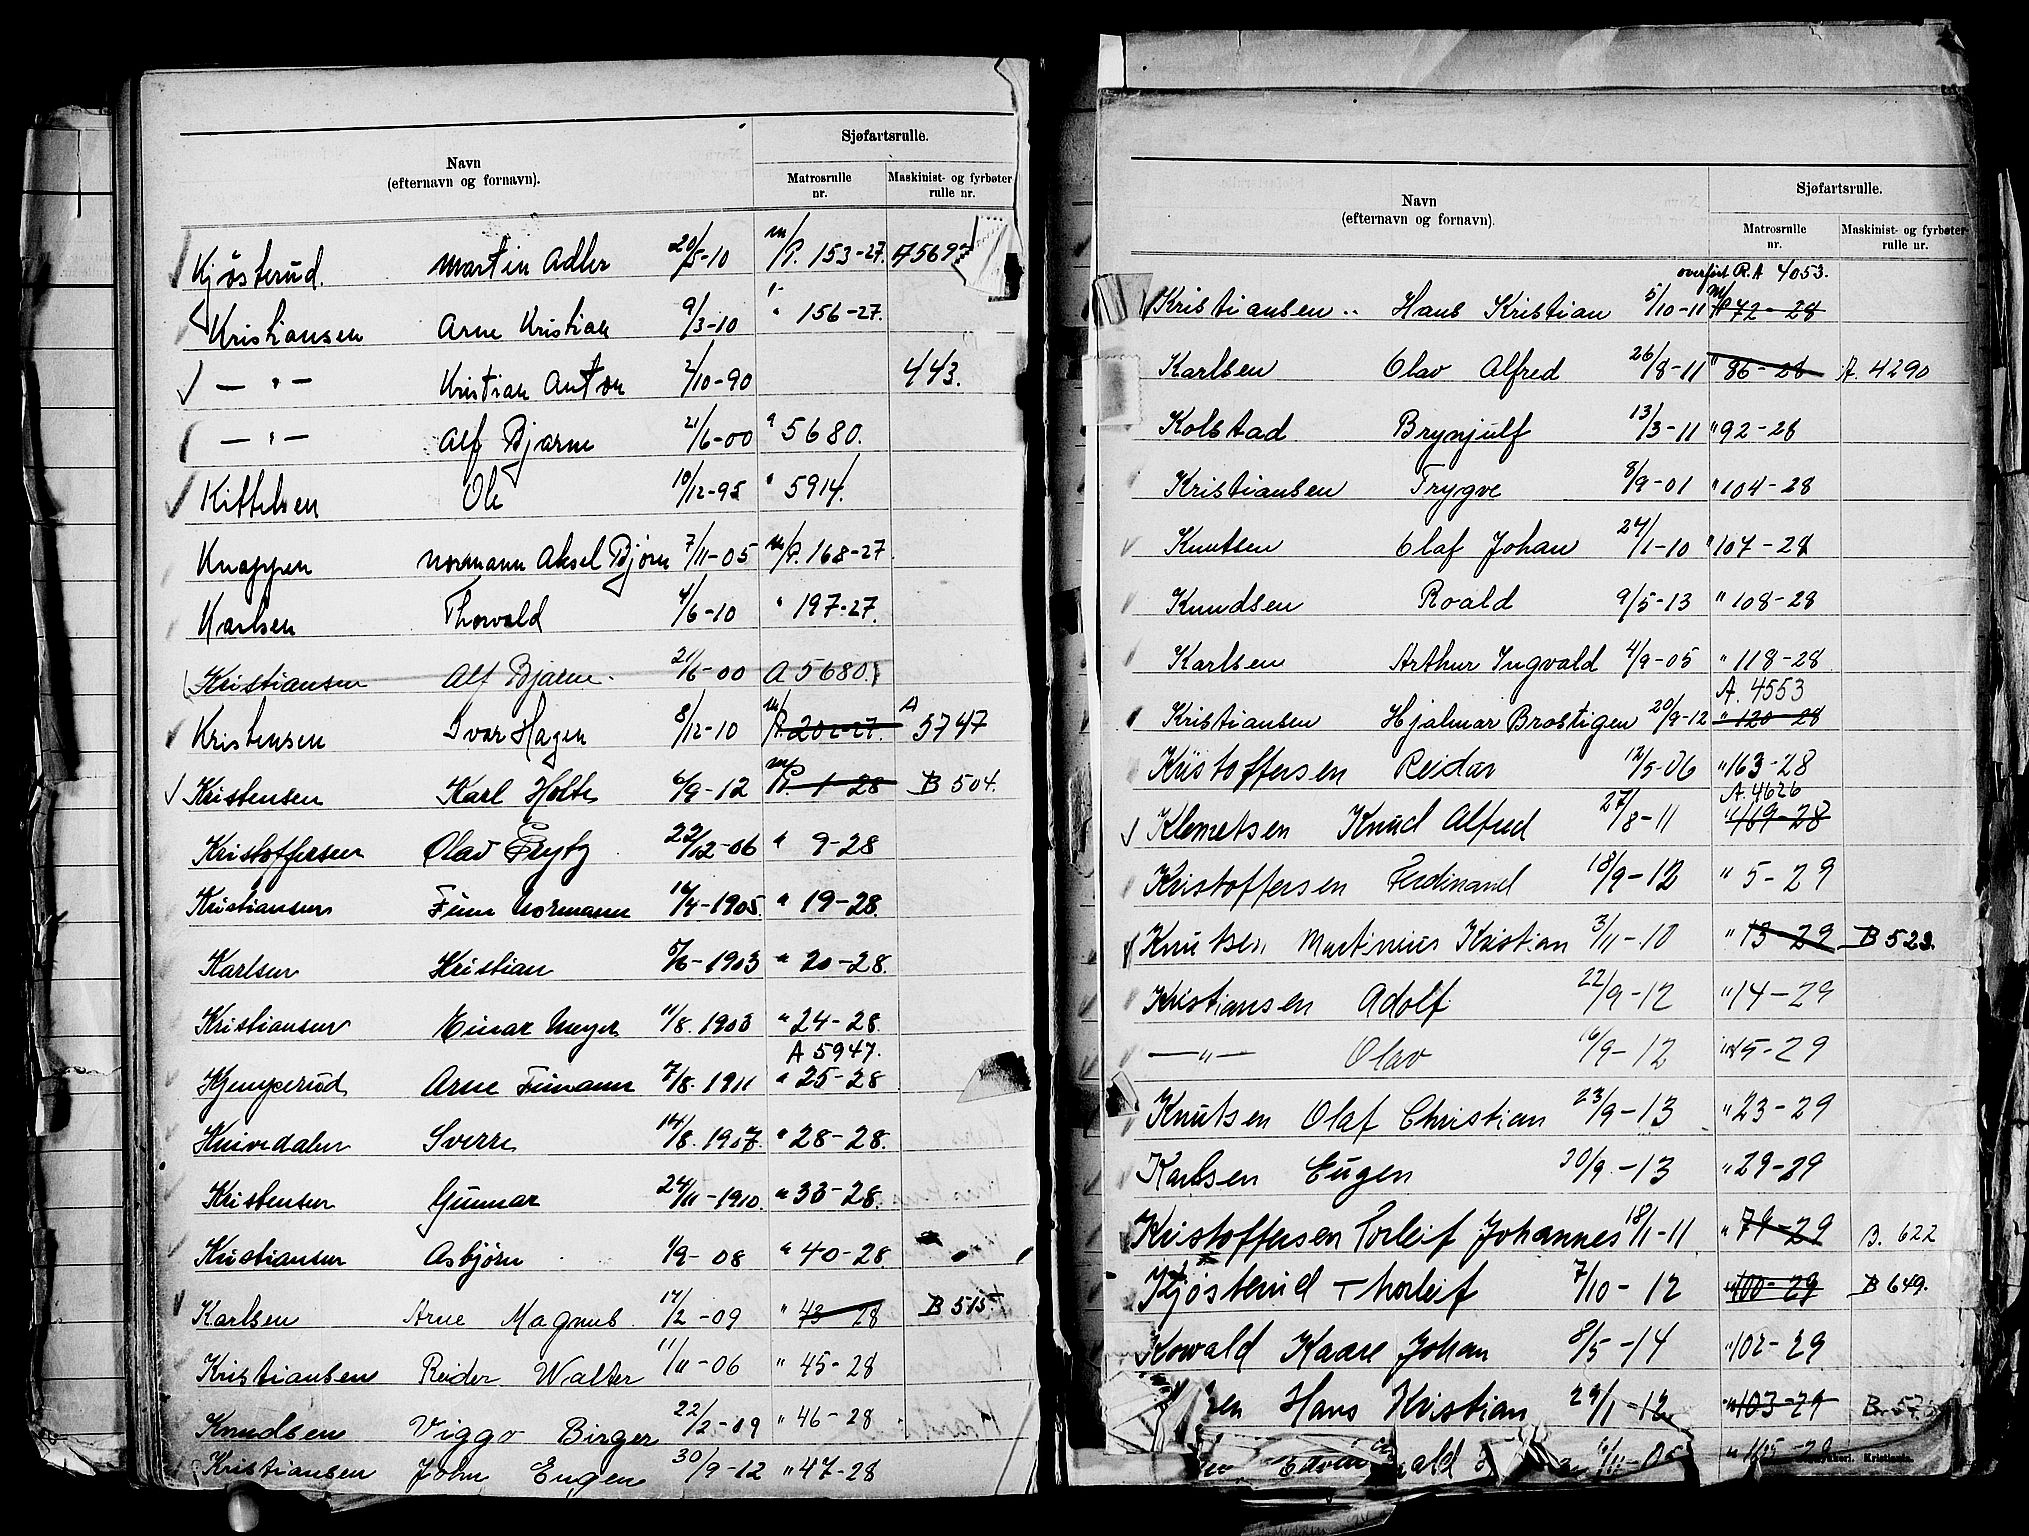 Navn
(efternavn og fornavn).
Sjøfartsrulle.
Matrosrulle
nr.
Maskinist- og fyrbøter
rulle nr.
Kjøsterud. Martin Adler 20/5-10 m/P. 153-27. A 5697
Kristiansen Arne Kristian 9/3-10 " 156-27.
— " — Kristian Anton 2/10-90 443.
— " — Alf Bjarne 21/6-00 " 5680.
Kittelsen Ole 10/12-95 " 5914.
Knappen Normann Aksel Bjørn 7/11-05 m/P. 168-27
Karlsen Thorvald 4/6-10 " 197-27.
Kristiansen Alf Bjarne. 21/6-00 A 5680.
Kristensen Ivar Hagen 8/12-10 m/P. 202-27. A 5747
Kristensen Karl Holte 6/9-12 m/P. 1-28 B 504.
Kristoffersen Olav 22/12-06 " 9-28
Kristiansen Finn Normann 14/4-1905. " 19-28.
Karlsen Kristian 5/6-1903 " 20-28.
Kristiansen Einar Meyer 11/8.1903 " 24-28.
A 5947.
Kjemperud Arne Finmann 7/8.1911 " 25-28
Knivedalen Sverre 14/8.1907. " 28-28.
Kristensen Gunnar 24/11-1910. " 33-28.
Kristiansen Asbjørn 1/9-08 " 40-28.
Karlsen Arne Magnus. 14/2-09 " 43-28 B 515.
Kristiansen Reidar Walter 11/11-06 " 45-28
Knudsen Viggo Birger 22/2-09 " 46-28
Kristiansen John Eugen 30/9-12 " 47-28
Navn
(efternavn og fornavn).
Sjøfartsrulle.
Matrosrulle
nr.
Maskinist- og fyrbøter-
rulle nr.
overført R.A 4053.
Kristiansen Hans Kristian 5/10-11 m/P 72-28
Karlsen Olav Alfred 26/8-11 " 86-28 A. 4290
Kolstad Brynjulf 13/3-11 " 92-28
Kristiansen Trygve 8/9-01 " 104-28
Knutsen Olaf Johan 24/1-10 " 107-28
Knudsen Roald 9/5-13 " 108-28
Karlsen Arthur Ingvald 4/9-05 " 118-28
A. 4553
Kristiansen Hjalmar Brostigen 20/9-12 " 120-28
Kristoffersen Reidar 12/5-06 " 163-28
A. 4626
Klemetsen Knud Alfred 27/8-11 " 169-28
Kristoffersen Ferdinand 18/9-12 " 5-29
Knutsen Martinius Kristian 3/11-10 " 13-29 B 523.
Kristiansen Adolf 22/9-12 " 14-29
— " — Olav 16/9-12 " 15-29
Knutsen Olaf Christian 23/9-13 " 23-29
Karlsen Eugen 30/9.-13 " 29-29
Kristoffersen Torleif Johannes 18/1-11 " 79-29 B. 622
Kjøsterud Thorleif 7/10-12 " 100-29 B 649.
Kowald Kaare Johan 8/5-14 " 102-29
Hans Kristian 29/1-12 " 103-29 B. 57
Edvin 6/11-05 " 105-29
Kristiania.